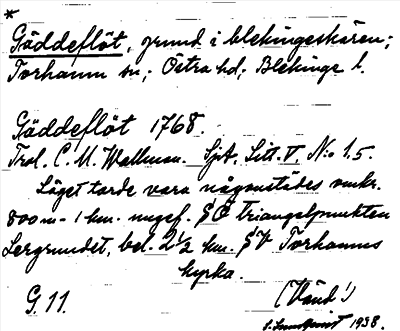 *
Gäddeflöt, grund i Blekingeskären;
Torhamn sn; Östra hd; Blekinge l.
Gäddeflöt 1768.
Trol. C. M. Wallman. Sjök. Litt. V, N:o 15.
Läget torde vara någonstädes omkr.
800 m - 1 km. ungef. SO Triangelpunkten
Lergrundet, bel. 2½ km. SV Torhamns
kyrka.
G. 11. (Vänd!)
1938.